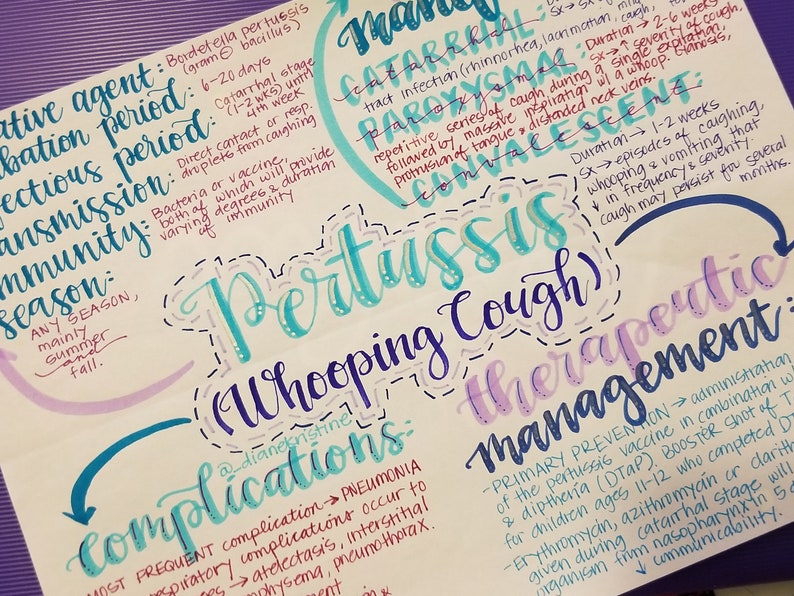 ative agent: Bordetella pertussis
(gram ⊖ bacillus)
bation period: 6-20 days
ectious period: Catarrhal stage
(1-2 wks) until
4th week
ansmission: Direct contact or resp.
droplets from caughing
mmunity: Bacteria or vaccine,
both of which will provide
varying degrees & duration
of immunity
season:
ANY SEASON,
mainly
summer
and
fall.
CATARRHAL:
catarrhal
tract infection (rhinnorhea, lacrimation, mild cough,
PAROXYSMAL: Duration → 2-6 weeks
paroxysmal
sx → ↑ severity of cough,
repetitive series of caugh during a single expiration,
followed by massive inspiration w/ a whoop.
protrusion of tongue & distended neck veins.
CONVALESCENT:
convalescent
Duration → 1-2 weeks
sx → episodes of caughing,
whooping & vomiting that
↓ in frequency & severity.
caugh may persist for several
months.
Pertussis
(Whooping Cough)
@_dianekristine
therapeutic
management:
-PRIMARY PREVENTION → administration
of the pertussis vaccine in combination w
& diptheria (DTaP). BOOSTER shot of T
for children ages 11-12 who completed DT
-Erythromycin, azithromycin or clarith
given during catarrhal stage will
organism from nasopharynx in 5 d
↓ communicability.
complications:
MOST FREQUENT complication → PNEUMONIA
respiratory complications occur to
→ atelectasis, interstitial
physema, pneumothorax.